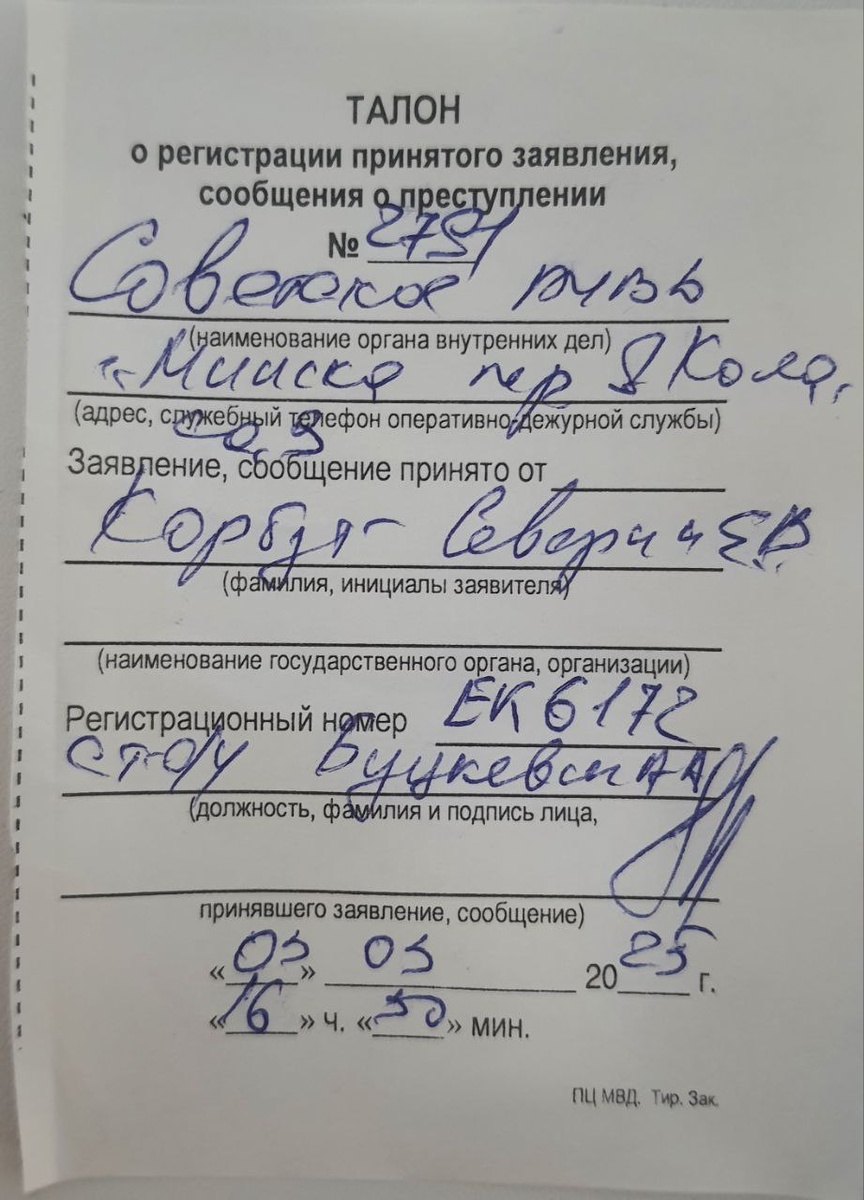 ТАЛОН
о регистрации принятого заявления,
сообщения о преступлении
№ 2791
Советское РУВД
г. Минска пер Я Коласа, 3
(наименование органа внутренних дел)
(адрес, служебный телефон оперативно-дежурной службы)
Заявление, сообщение принято от
Корбут- Северин ЕВ
(фамилия, инициалы заявителя)
(наименование государственного органа, организации)
Регистрационный номер ЕК 6172
ст о/у Буцкевич АА
(должность, фамилия и подпись лица,
принявшего заявление, сообщение)
«03» 03 2025 г.
«16» ч. «50» мин.
ПЦ МВД. Тир. Зак.